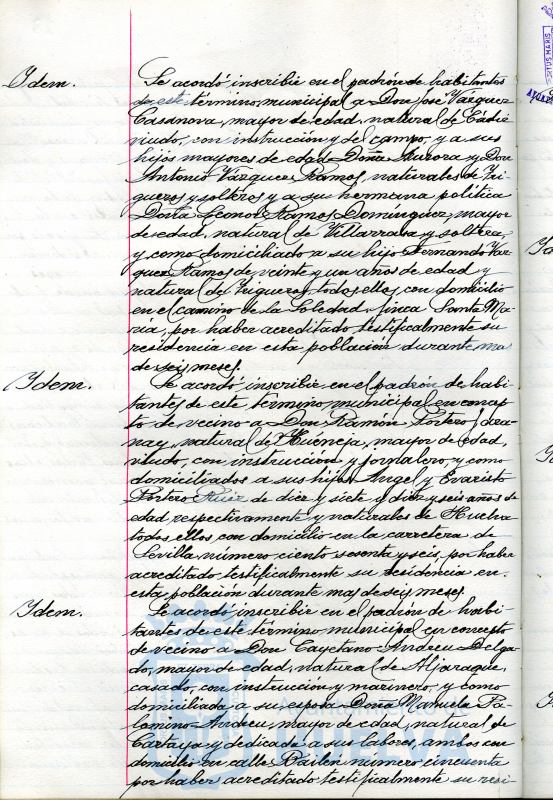 Idem. Se acordó inscribir en el padrón de habitantes
de este término municipal a Don José Vázquez
Casanova, mayor de edad, natural de Cádiz
viudo, con instrucción y del campo, y a sus
hijos mayores de edad Doña Aurora y Don
Antonio Vázquez Ramos, naturales de Tri-
gueros y solteros y a su hermana politica
Doña Leonor Ramos Domínguez, mayor
de edad, natural de Villarrasa y soltera,
y como domiciliado a su hijo Fernando Váz-
quez Ramos de veinte y un años de edad y
natural de Trigueros, todos ellos con domicilio
en el camino de la Soledad, finca Santa Ma-
ria, por haber acreditado testificalmente su
residencia en esta población durante mas
de seis meses.
Idem. Se acordó inscribir en el padrón de habi-
tantes de este término municipal en concep-
to de vecino a Don Ramón Portero
natural de Hueneja, mayor de edad,
viudo, con instrucción y jornalero, y como
domiciliados a sus hijos Angel y Evaristo
Portero Ruiz de diez y siete y diez y seis años de
edad respectivamente y naturales de Huelva
todos ellos con domicilio en la carretera de
Sevilla, número ciento y seis, por haber
acreditado testificalmente su residencia en
esta población durante mas de seis meses.
Idem. Se acordó inscribir en el padrón de habi-
tantes de este término municipal en concepto
de vecino a Don Cayetano Andreu Delga-
do, mayor de edad, natural de Aljaraque,
casado, con instrucción y marinero, y como
domiciliada a su esposa Doña Manuela Pa-
lomino Andreu, mayor de edad, natural de
Cartaya y dedicada a sus labores, ambos con
domicilio en calle Bailen número cincuenta
por haber acreditado testificalmente su resi-
HUELVA